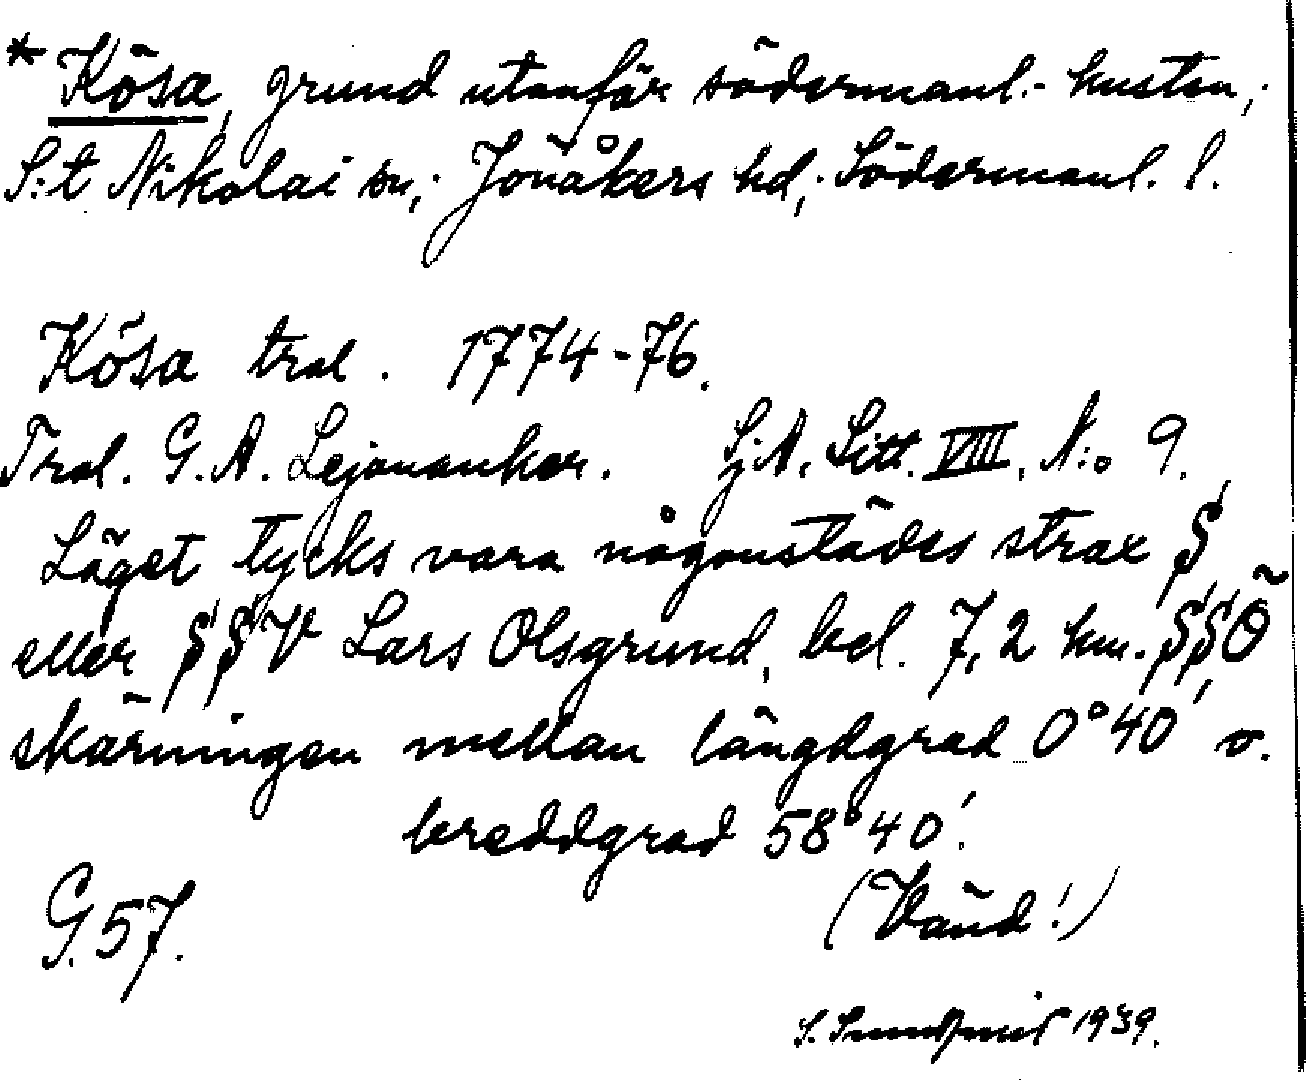 * Kösa, grund utanför södermanl.- kusten,
S:t Nikolai sn, Jönåkers hd, Södermanl. l.
Kösa tral. 1774-76.
Tral. G. A. Lejonanker. SjA. Litt. VIII, N:o 9.
Läget tycks vara någonstädes strax S
eller SSV Lars Olsgrund, bel. 7,2 km. SSÖ
skärningen mellan längdgrad 0°40' o.
breddgrad 58°40'.
G. 57. (Vänd!)
S. Sundqvist 1939.